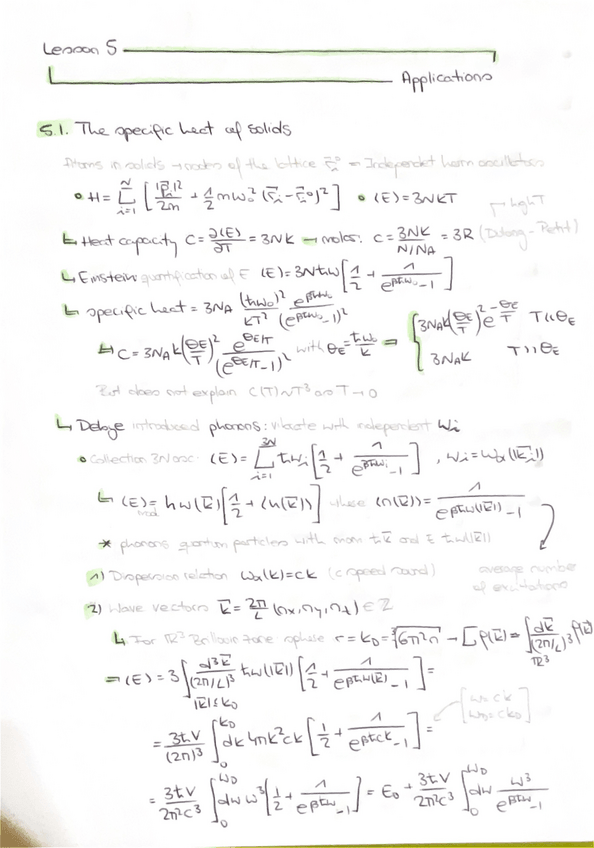 Lesson 5
Applications
5.1. The specific heat of solids
Atoms in solids → nodes of the lattice r⃗ᵢ° = Independent harm oscillators
• H = Σ_{i=1}^{N} [ |p⃗ᵢ|²/2m + 1/2 mω₀² (r⃗ᵢ - r⃗ᵢ°)² ] • ⟨E⟩ = 3NkT
↳ Heat capacity C = ∂⟨E⟩/∂T = 3Nk → moles: c = 3Nk/(N/NA) = 3R (Dulong-Petit) → high T
↳ Einstein quantification of E ⟨E⟩ = 3Nħω [ 1/2 + 1/(e^{βħω₀} - 1) ]
↳ specific heat = 3NA (ħω₀)²/kT² e^{βħω₀}/(e^{βħω₀} - 1)²
↳ C = 3NAk (θE/T)² e^{θE/T}/(e^{θE/T} - 1)² with θE = ħω₀/k ⇒ { 3NAk (θE/T)² e^{-θE/T} T << θE
3NAk T >> θE
But does not explain C(T) ~ T³ as T → 0
↳ Debye introduced phonons: vibrate with independent ωᵢ
• Collection 3N osc. ⟨E⟩ = Σ_{i=1}^{3N} ħωᵢ [ 1/2 + 1/(e^{βħωᵢ} - 1) ] , ωᵢ = ωα(|k⃗ᵢ|)
↳ ⟨E⟩ = ħω(k⃗) [ 1/2 + ⟨n(k⃗)⟩ ] where ⟨n(k⃗)⟩ = 1/(e^{βħω(|k⃗|)} - 1)
* phonons quantum particles with mom ħk⃗ and E ħω(|k⃗|)
average number
of excitations
1) Dispersion relation ωα(k) = ck (c speed sound)
2) Wave vectors k⃗ = 2π/L (nx, ny, nz) ∈ Z
↳ For ℝ³ Brillouin zone sphere r = kD = ∛(6π²n) → Σ f(k⃗) = ∫_{ℝ³} dk⃗/(2π/L)³ f(k⃗)
⇒ ⟨E⟩ = 3 ∫_{|k⃗|≤kD} d³k⃗/(2π/L)³ ħω(|k⃗|) [ 1/2 + 1/(e^{βħω(k⃗)} - 1) ] =
= 3ħV/(2π)³ ∫₀^{kD} dk 4πk² ck [ 1/2 + 1/(e^{βħck} - 1) ] = [ ω = ck
ωD = ckD ]
= 3ħV/2π²c³ ∫₀^{ωD} dω ω³ [ 1/2 + 1/(e^{βħω} - 1) ] = E₀ + 3ħV/2π²c³ ∫₀^{ωD} dω ω³/(e^{βħω} - 1)